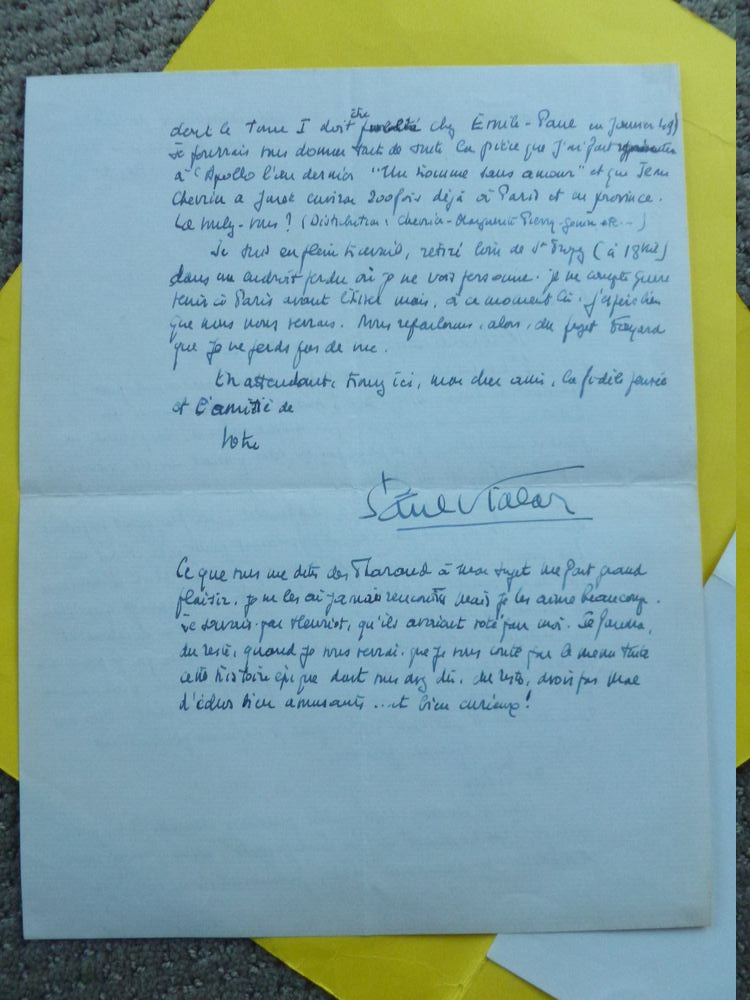 dont le Tome I doit être publié chez Emile-Paul en Janvier 49)
Je pourrais vous donner tout de suite la pièce que j'ai fait représenter
à l'Apollo l'an dernier "Un homme sans amour" et que Jean
Chevrier a jouée environ 200 fois déjà à Paris et en province.
La voulez-vous? (Distribution: Chevrier-Marguerite Pierry- etc...)
Je suis en plein travail, retiré loin de St Tropez (à 18 km)
dans un endroit perdu où je ne vois personne. Je ne compte guère
venir à Paris avant l'hiver mais, à ce moment là, j'espère bien
que nous nous verrons. Nous reparlerons, alors, du projet Fayard
que je ne perds pas de vue.
En attendant, trouvez ici, mon cher ami, la fidèle pensée
et l'amitié de
Votre
Paul Vialar
Ce que vous me dites des Tharaud à mon sujet me fait grand
plaisir. Je ne les ai jamais rencontrés mais je les aime beaucoup.
Je savais, par Henriot, qu'ils avaient voté pour moi. Il faudra,
du reste, quand je vous verrai, que je vous conte par le menu toute
cette histoire épique dont vous avez dû, du reste, avoir pas mal
d'échos bien amusants... et bien curieux!